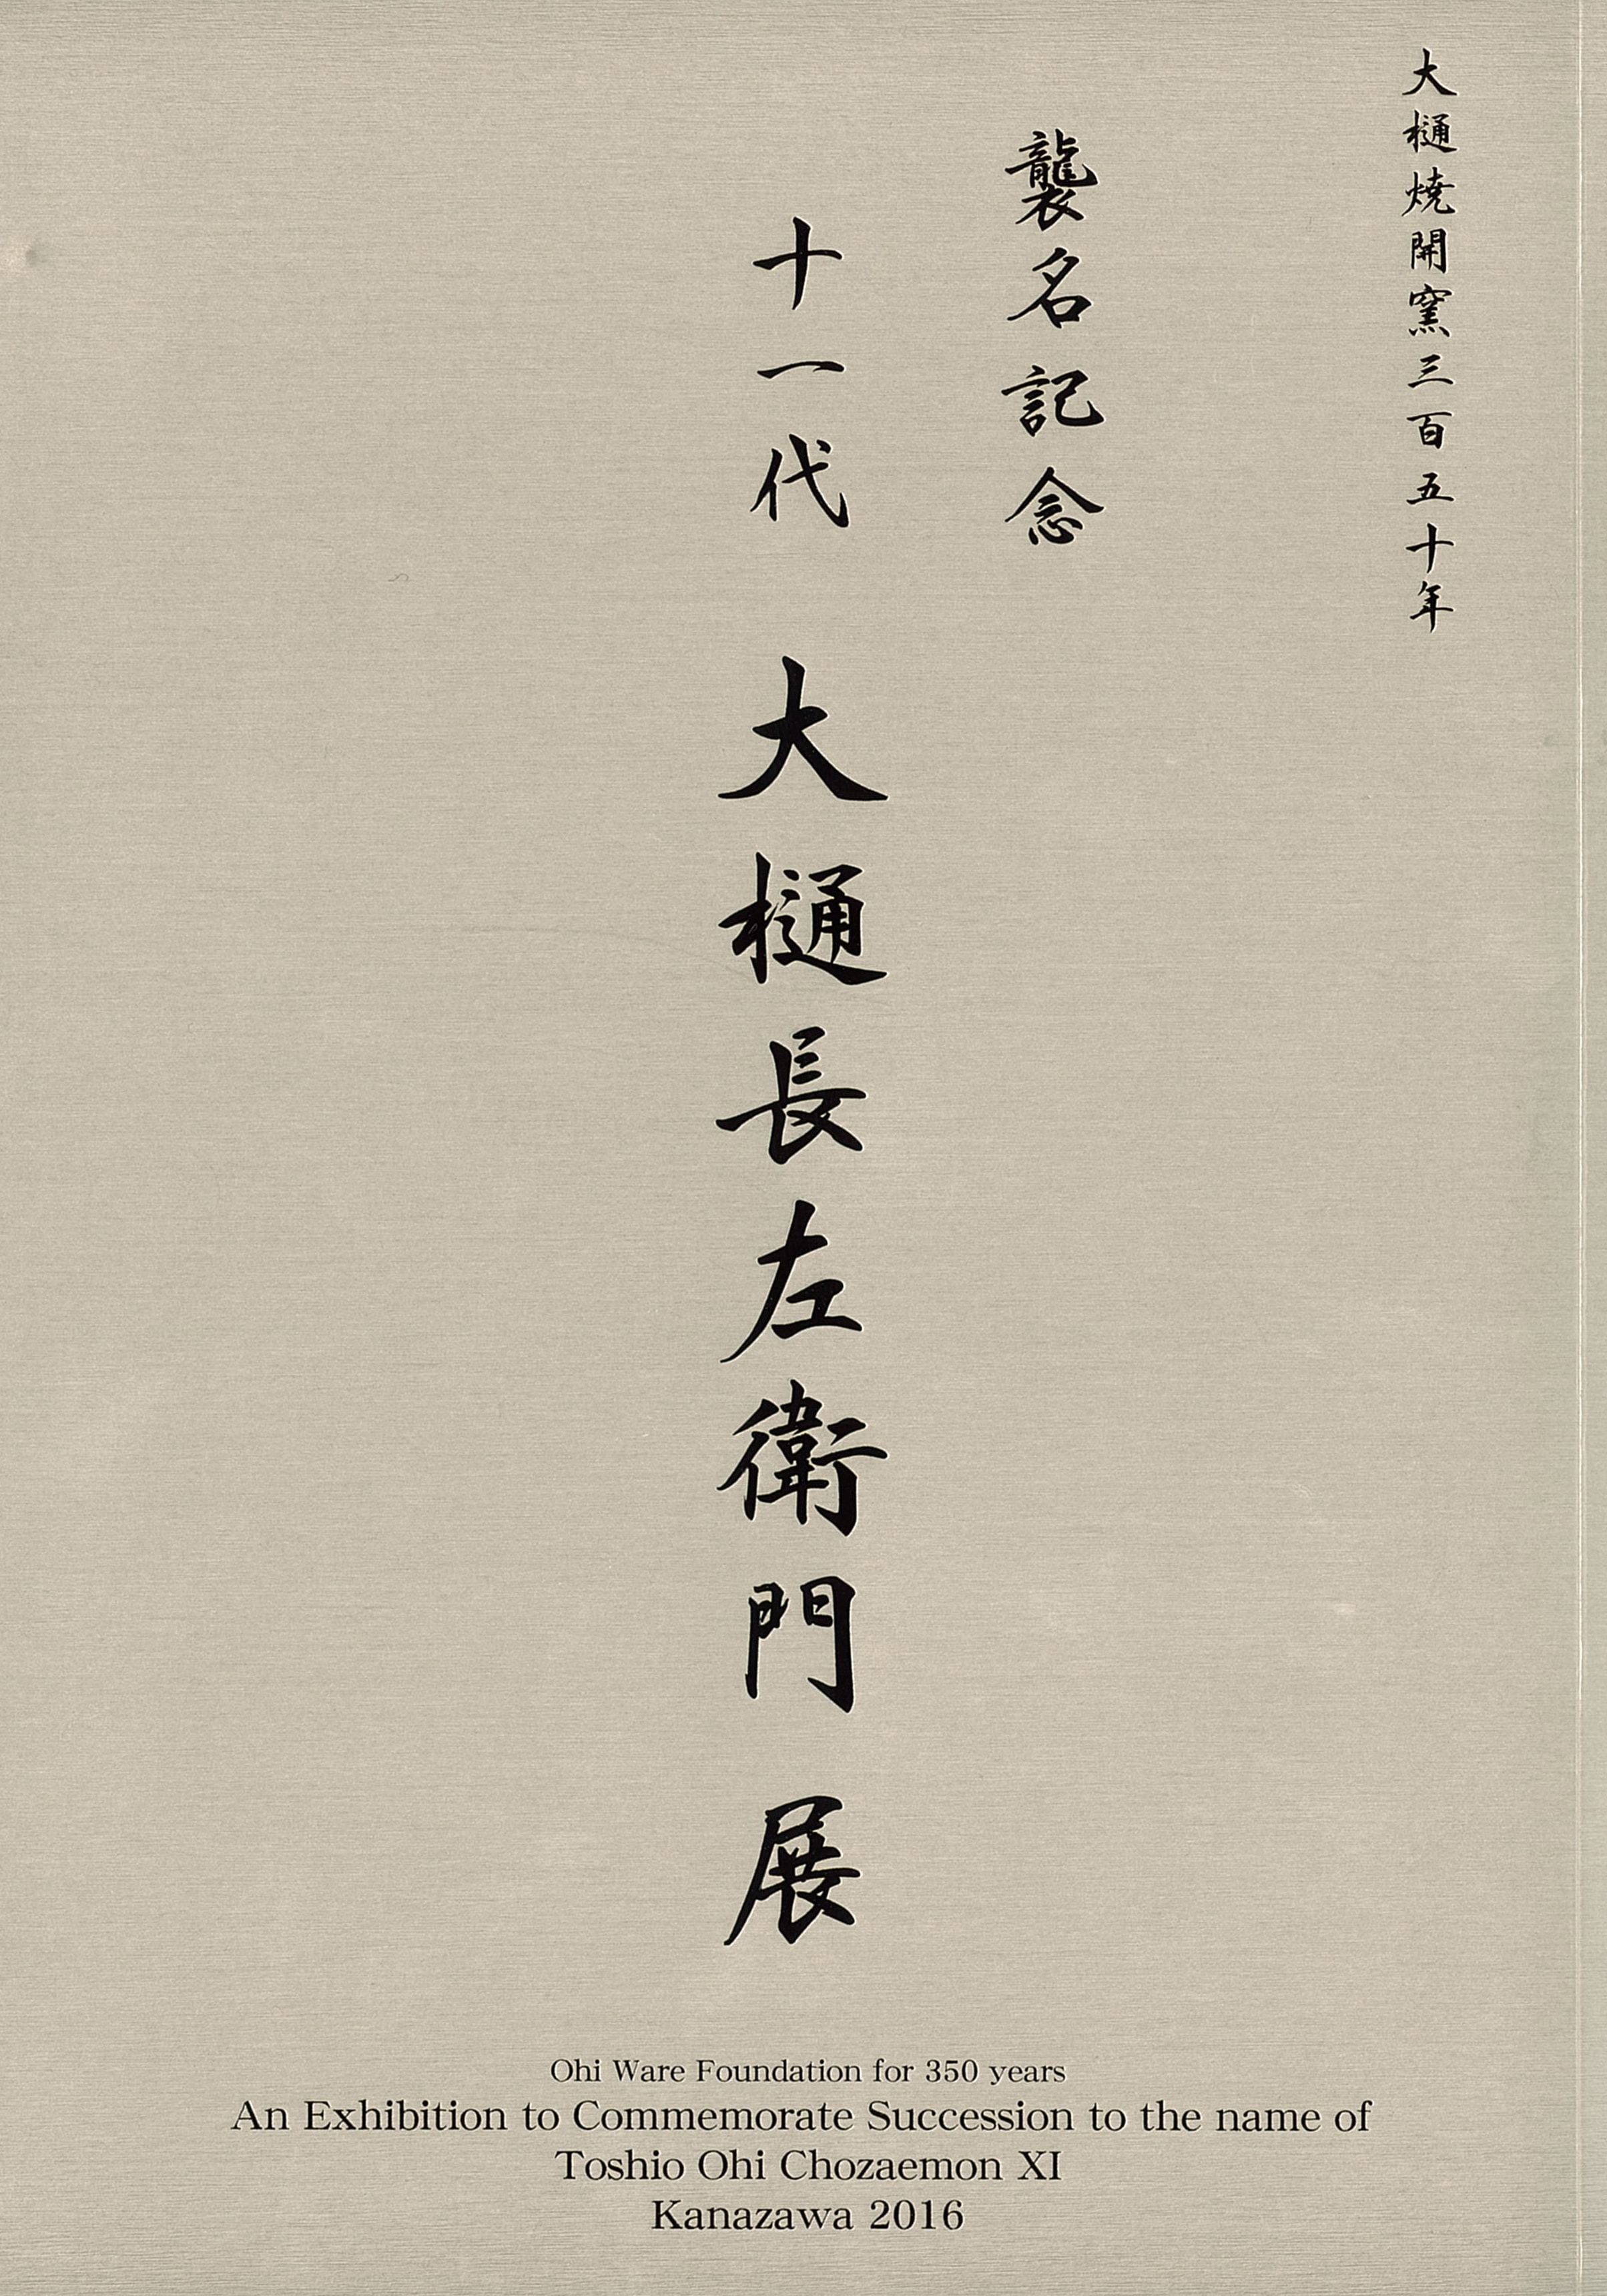 大樋焼開窯三百五十年
襲名記念
十一代 大樋長左衛門 展
Ohi Ware Foundation for 350 years
An Exhibition to Commemorate Succession to the name of
Toshio Ohi Chozaemon XI
Kanazawa 2016